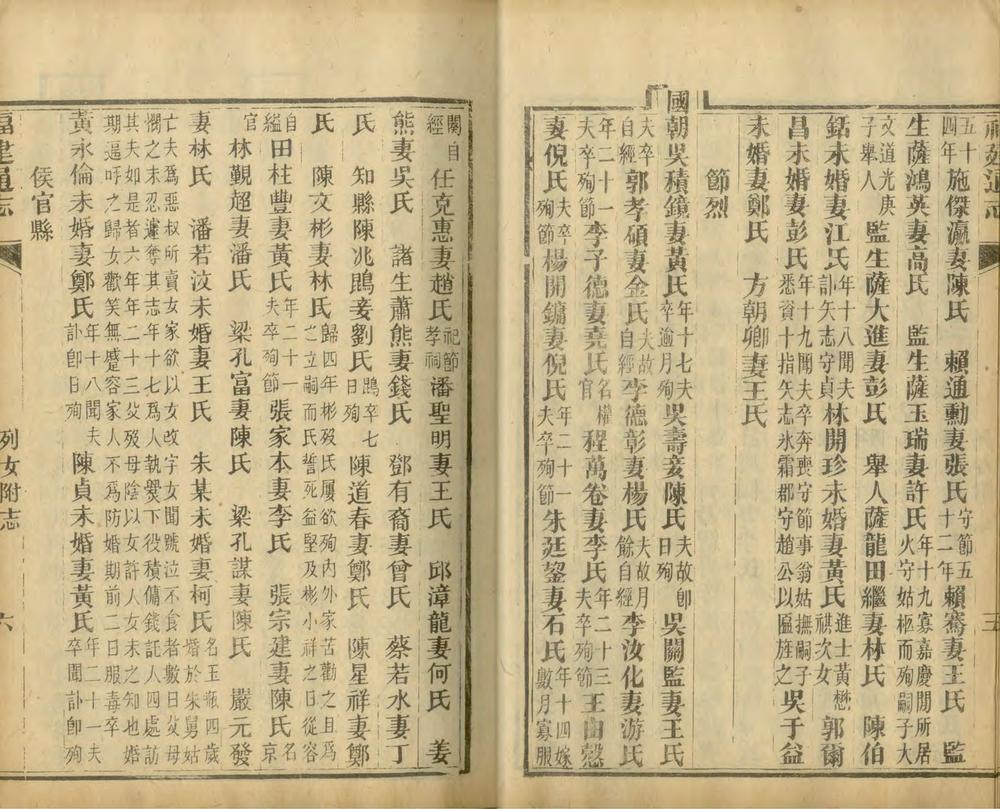 五十四年施傑瀛妻陳氏　賴通勳妻張氏守節五十二年賴騫妻王氏　監
生薩鴻英妻高氏　監生薩玉瑞妻許氏年十九寡嘉慶間所居火守姑柩而殉嗣子大
文道光庚子舉人　監生薩大進妻彭氏　舉人薩龍田繼妻林氏　陳伯
銛未婚妻江氏年十八聞夫訃矢志守貞林開珍未婚妻黃氏進士黃懋祺次女　郭爾
昌未婚妻彭氏年十九聞夫卒奔喪守節事翁姑撫嗣子悉資十指矢志氷霜郡守趙公以匾旌之吳于益
未婚妻鄭氏　方朝卿妻王氏
節烈
國朝吳積鏡妻黃氏年十七夫卒逾月殉吳壽妻陳氏夫故即日殉　吳關監妻王氏
夫卒自經　郭孝碩妻金氏夫故自經李德彰妻楊氏夫故月餘自經李汝化妻游氏
年二十一夫卒殉節李子德妻堯氏名權官　程萬卷妻李氏年二十三夫卒殉節王由慤
妻倪氏夫卒殉節楊開鏞妻倪氏年二十一夫卒殉節朱廷鋆妻石氏年十四嫁數月寡服
闋自經　任克惠妻趙氏祀節孝祠潘聖明妻王氏　邱漳龍妻何氏　姜
熊妻吳氏　諸生蕭熊妻錢氏　鄧有裔妻曾氏　蔡若水妻丁
氏　知縣陳兆鵾妾劉氏鵾卒七日殉　陳道春妻鄭氏　陳星祥妻鄭
氏　陳文彬妻林氏歸四年彬歿氏屢欲殉內外家苦勸之且爲之立嗣而氏誓死益堅及彬小祥之日從容
自縊田柱豐妻黃氏年二十一夫卒殉節　張家本妻李氏　張宗建妻陳氏名京
官　林觀超妻潘氏　梁孔富妻陳氏　梁孔謀妻陳氏　嚴元發
妻林氏　潘若汶未婚妻王氏　朱某未婚妻柯氏名玉瓶四歲婚於朱舅姑
亡夫爲惡叔所賣女家欲以女改字女聞號泣不食者數日父母憫之未忍遽奪其志年十七爲人執爨下役積傭錢託人四處訪
其夫如是者六年年二十三父歿母陰以女許人女未之知也婚期逼呼之歸女歡笑無蹙容家人不爲防婚期前二日服毒卒
黃永倫未婚妻鄭氏年十八聞夫訃即日殉　陳貞未婚妻黃氏年二十一夫卒聞訃即殉
侯官縣
福建通志
列女附志
六